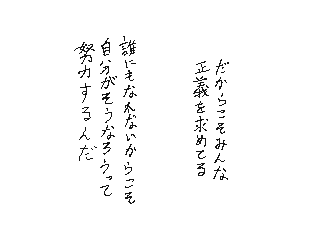 だからこそみんな
正義を求めてる
誰にもなれないからこそ
自分がそうなろうって
努力するんだ